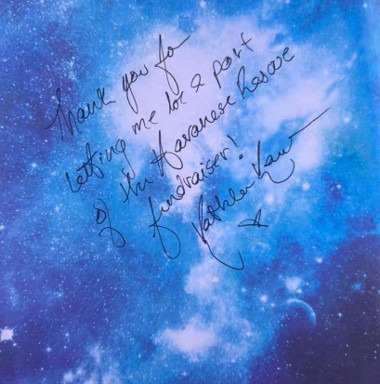 Thank you for
letting me be a part
of the Havanese Rescue
fundraiser!
Kathleen